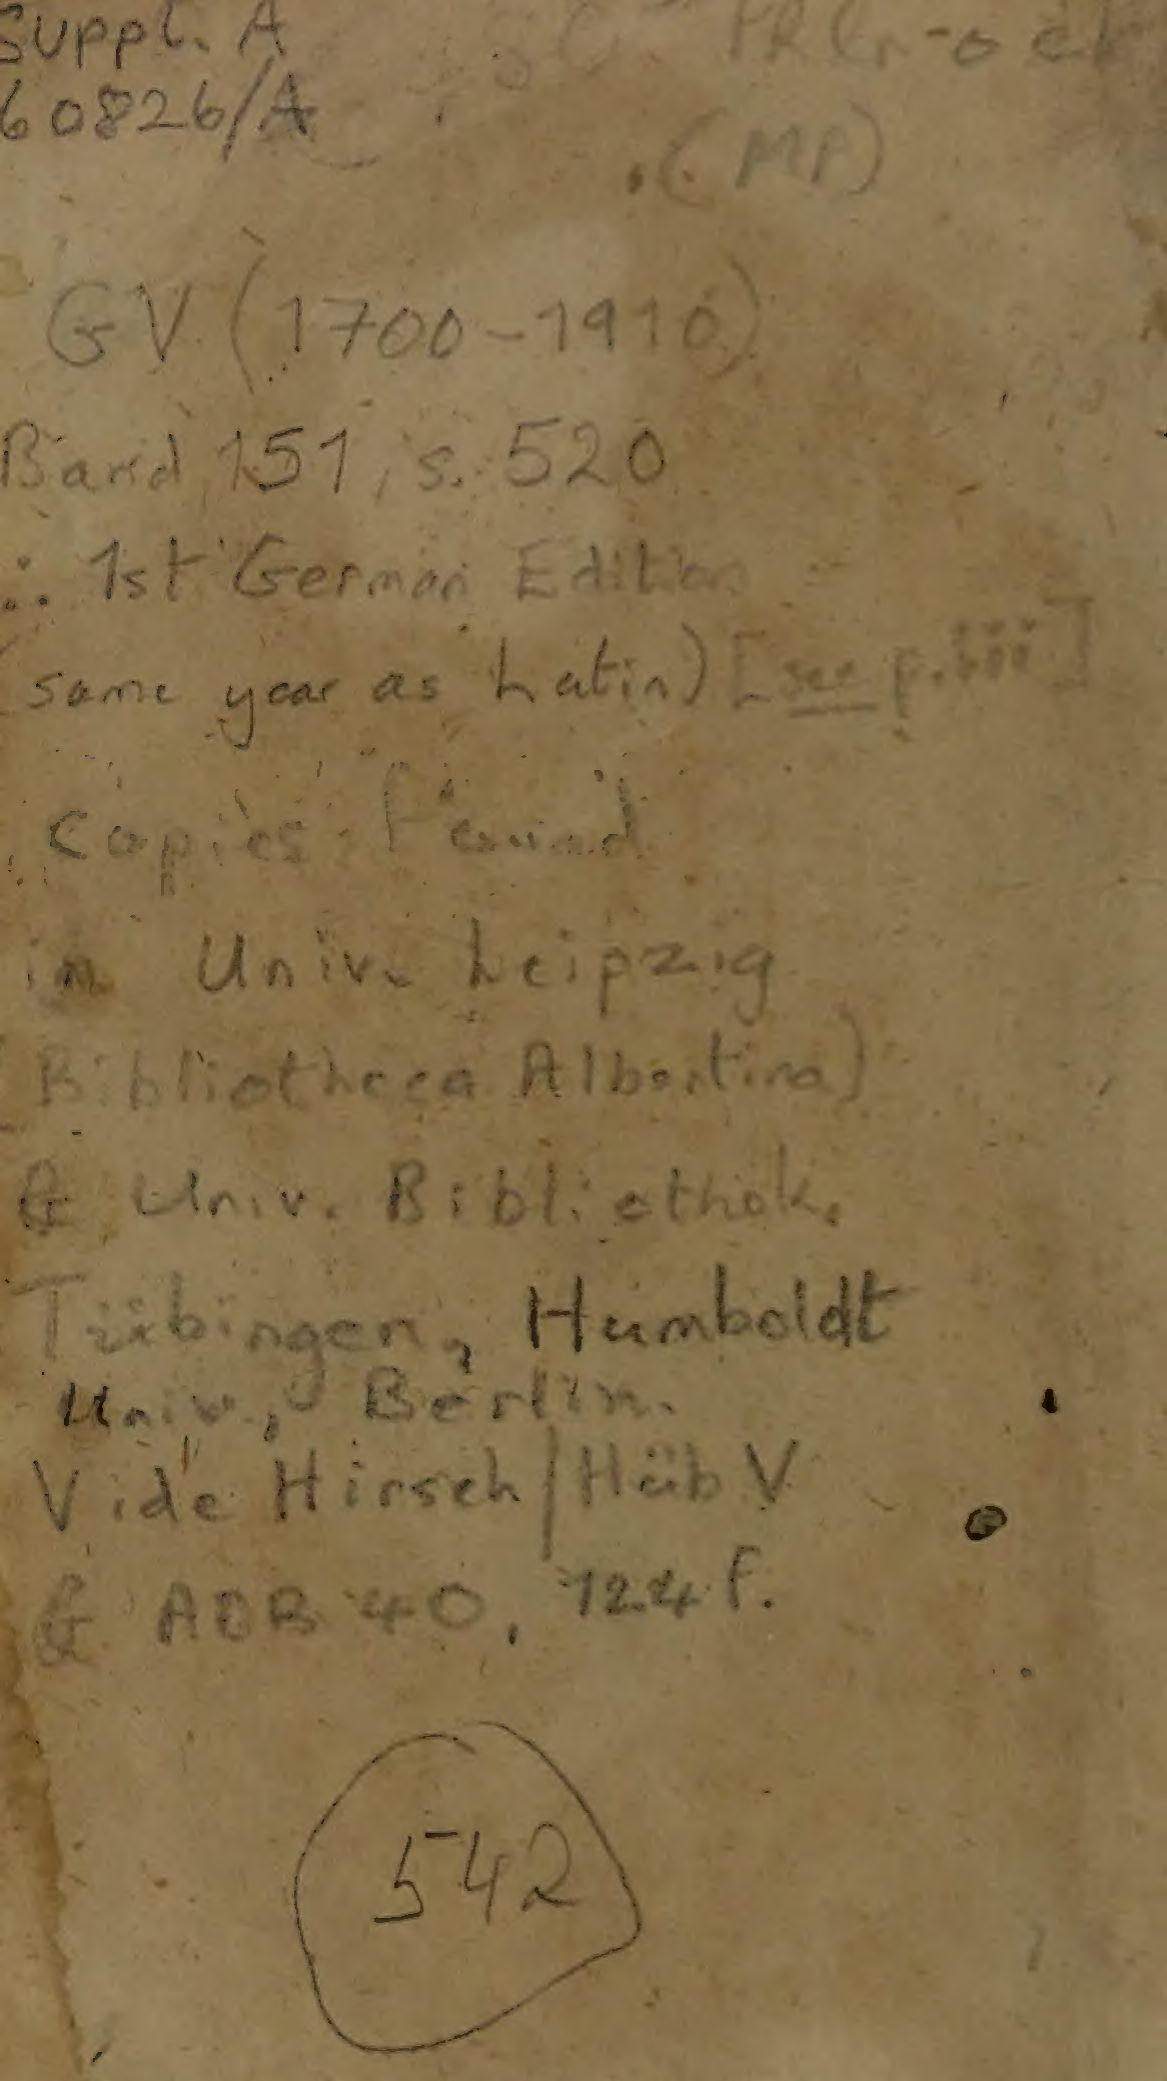 Suppl. A
60826/A
(MP)
GV (1700-1910)
Band 151, s. 520
∴ 1st German Edition
(same year as Latin) [see p. iii]
Copies found
in Univ. Leipzig
(Bibliotheca Albertina)
& Univ. Bibliothek.
Tübingen, Humboldt
Univ., Berlin.
Vide Hirsch/Hüb V
& ADB 40, 124 f.
542